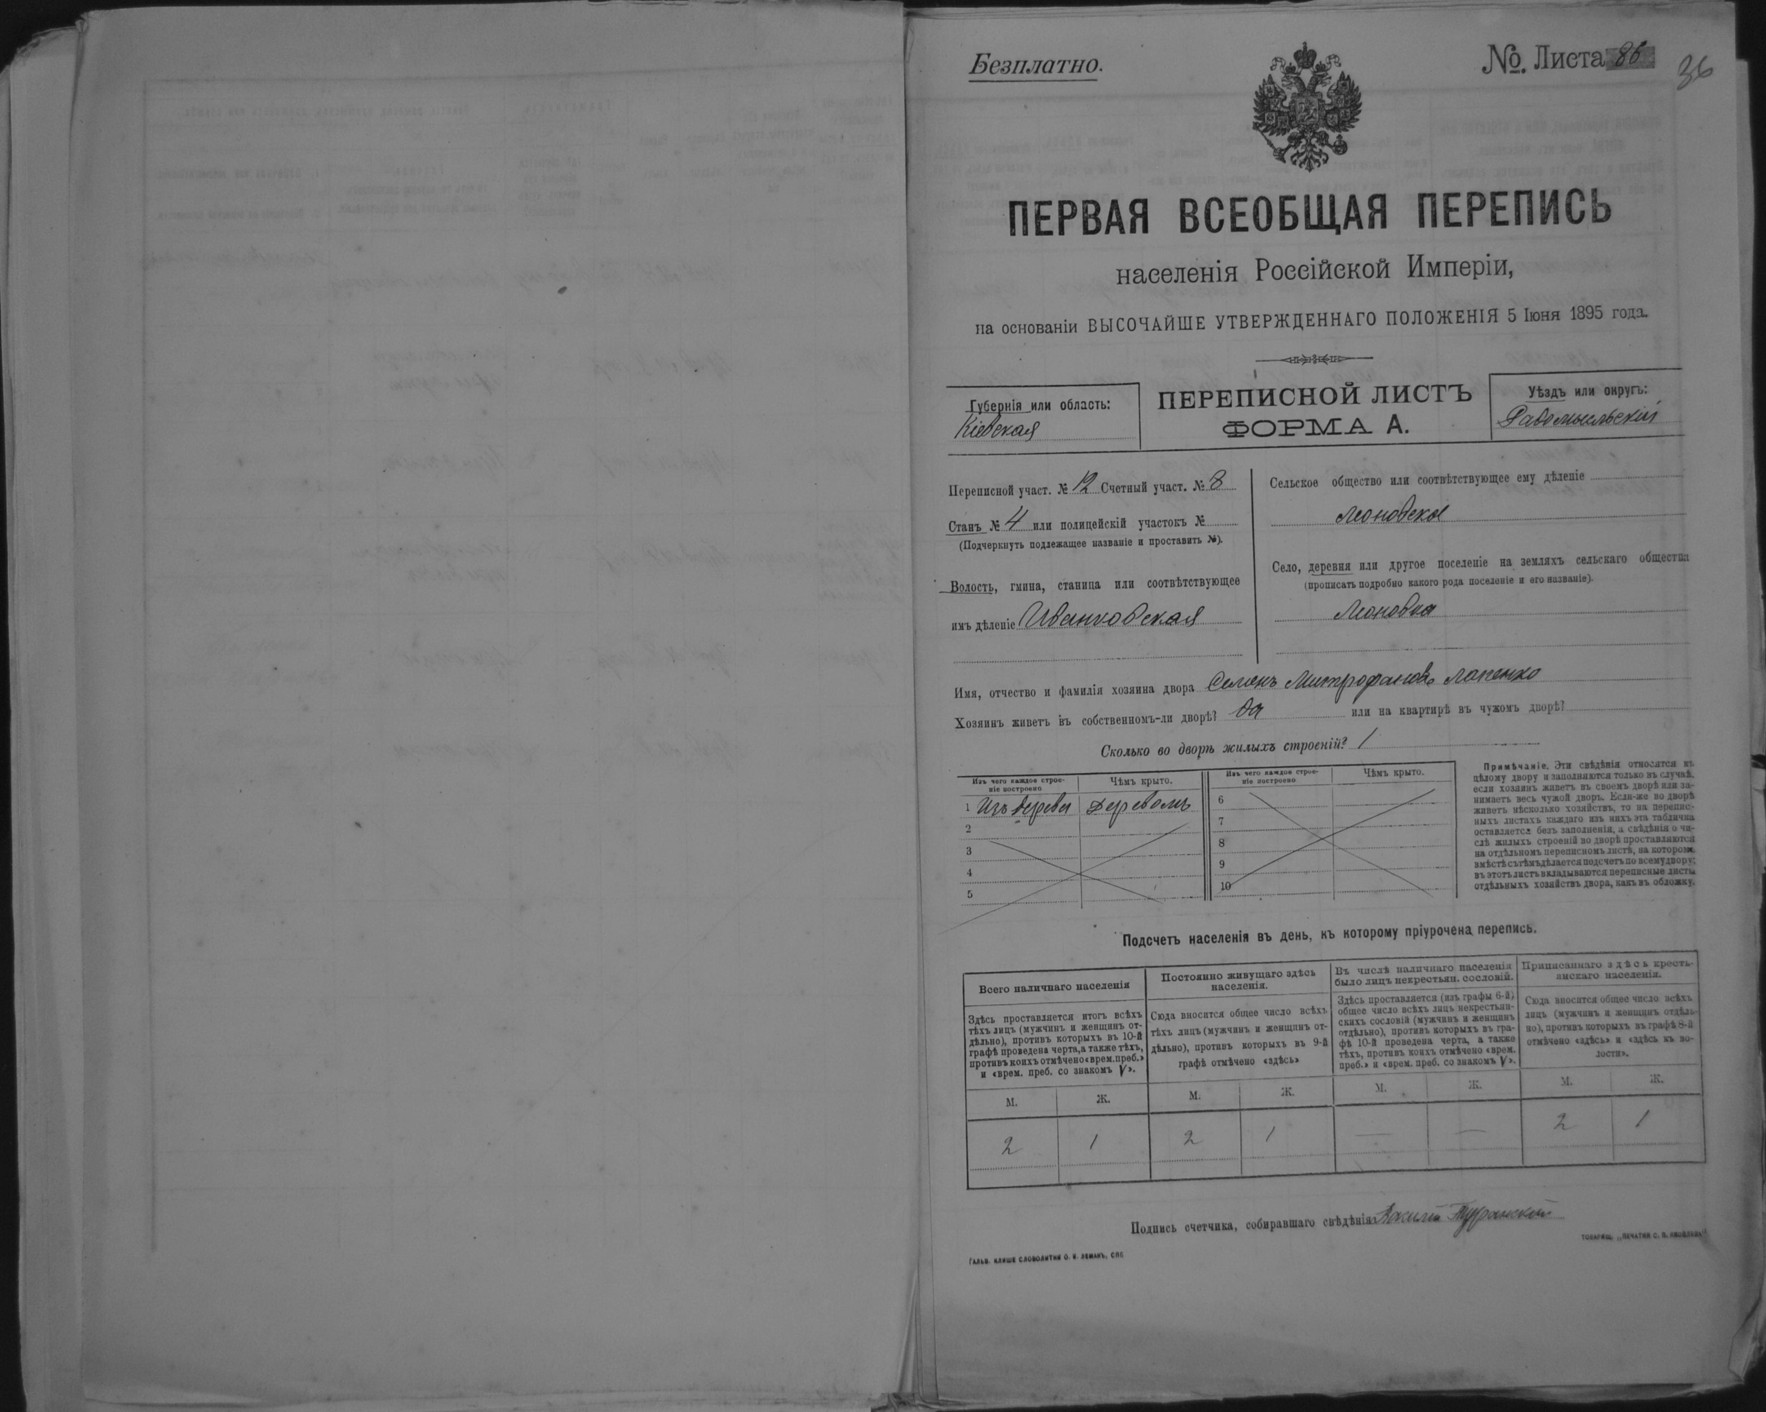 Безплатно.
№. Листа 86
36
ПЕРВАЯ ВСЕОБЩАЯ ПЕРЕПИСЬ
населенія Россійской Имперіи,
на основаніи ВЫСОЧАЙШЕ УТВЕРЖДЕННАГО ПОЛОЖЕНІЯ 5 Іюня 1895 года.
Губернія или область:
Кіевская
ПЕРЕПИСНОЙ ЛИСТЪ
ФОРМА А.
Уѣздъ или округъ:
Радомысльскій
Переписной участ. № 12 Счетный участ. № 8
Станъ № 4 или полицейскій участокъ №
(Подчеркнуть подлежащее названіе и проставить №).
Волость, гмина, станица или соотвѣтствующее
имъ дѣленіе Иванковская
Сельское общество или соотвѣтствующее ему дѣленіе
Село, деревня или другое поселеніе на земляхъ сельскаго общества
(прописать подробно какого рода поселеніе и его названіе).
Леоновка
Имя, отчество и фамилія хозяина двора Семенъ Митрофановъ Лапенко
Хозяинъ живетъ въ собственномъ-ли дворѣ? да или на квартирѣ въ чужомъ дворѣ?
Сколько во дворѣ жилыхъ строеній? 1
Изъ чего каждое строе-
ніе построено
Чѣмъ крыто.
1 Изъ дерева Деревомъ
2
3
4
5
Изъ чего каждое строе-
ніе построено
Чѣмъ крыто.
6
7
8
9
10
Примѣчаніе. Эти свѣдѣнія относятся къ
цѣлому двору и заполняются только въ случаѣ,
если хозяинъ живетъ въ своемъ дворѣ или за-
нимаетъ весь чужой дворъ. Если-же во дворѣ
живетъ нѣсколько хозяйствъ, то на перепис-
ныхъ листахъ каждаго изъ нихъ эта табличка
оставляется безъ заполненія, а свѣдѣнія о чи-
слѣ жилыхъ строеній во дворѣ проставляются
на отдѣльномъ переписномъ листѣ, на которомъ
вмѣстѣ съ тѣмъ дѣлается подсчетъ по всему двору;
въ этотъ листъ вкладываются переписные листы
отдѣльныхъ хозяйствъ двора, какъ въ обложку.
Подсчетъ населенія въ день, къ которому пріурочена перепись.
Всего наличнаго населенія
Здѣсь проставляется итогъ всѣхъ
тѣхъ лицъ (мужчинъ и женщинъ от-
дѣльно), противъ которыхъ въ 10-й
графѣ проведена черта, а также тѣхъ,
противъ коихъ отмѣчено «врем. преб.»
и «врем. преб. со знакомъ V».
Постоянно живущаго здѣсь
населенія.
Сюда вносится общее число всѣхъ
тѣхъ лицъ (мужчинъ и женщинъ от-
дѣльно), противъ которыхъ въ 9-й
графѣ отмѣчено «здѣсь»
Въ числѣ наличнаго населенія
было лицъ некрестьян. сословій.
Здѣсь проставляется (изъ графы 6-й)
общее число всѣхъ лицъ некрестьян-
скихъ сословій (мужчинъ и женщинъ
отдѣльно), противъ которыхъ въ гра-
фѣ 10-й проведена черта, а также
тѣхъ, противъ коихъ отмѣчено «врем.
преб.» и «врем. преб. со знакомъ V».
Приписаннаго здѣсь кресть-
янскаго населенія.
Сюда вносится общее число всѣхъ
лицъ (мужчинъ и женщинъ отдѣль-
но), противъ которыхъ въ графѣ 8-й
отмѣчено «здѣсь» и «здѣсь въ во-
лости».
М. Ж. М. Ж. М. Ж. М. Ж.
2 1 2 1 — — 2 1
Подпись счетчика, собиравшаго свѣдѣнія
ГАЛЬВ. КЛИШЕ СЛОВОЛИТНИ О. И. ЛЕМАНЪ, СПБ.